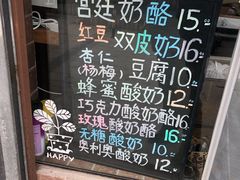 宫廷奶酪15.
红豆双皮奶16.
杏仁
(杨梅)豆腐10.
蜂蜜酸奶12.
巧克力酸奶酪16.
玫瑰酸奶酪16.
无糖酸奶10.
奥利奥酸奶12.
HAPPY